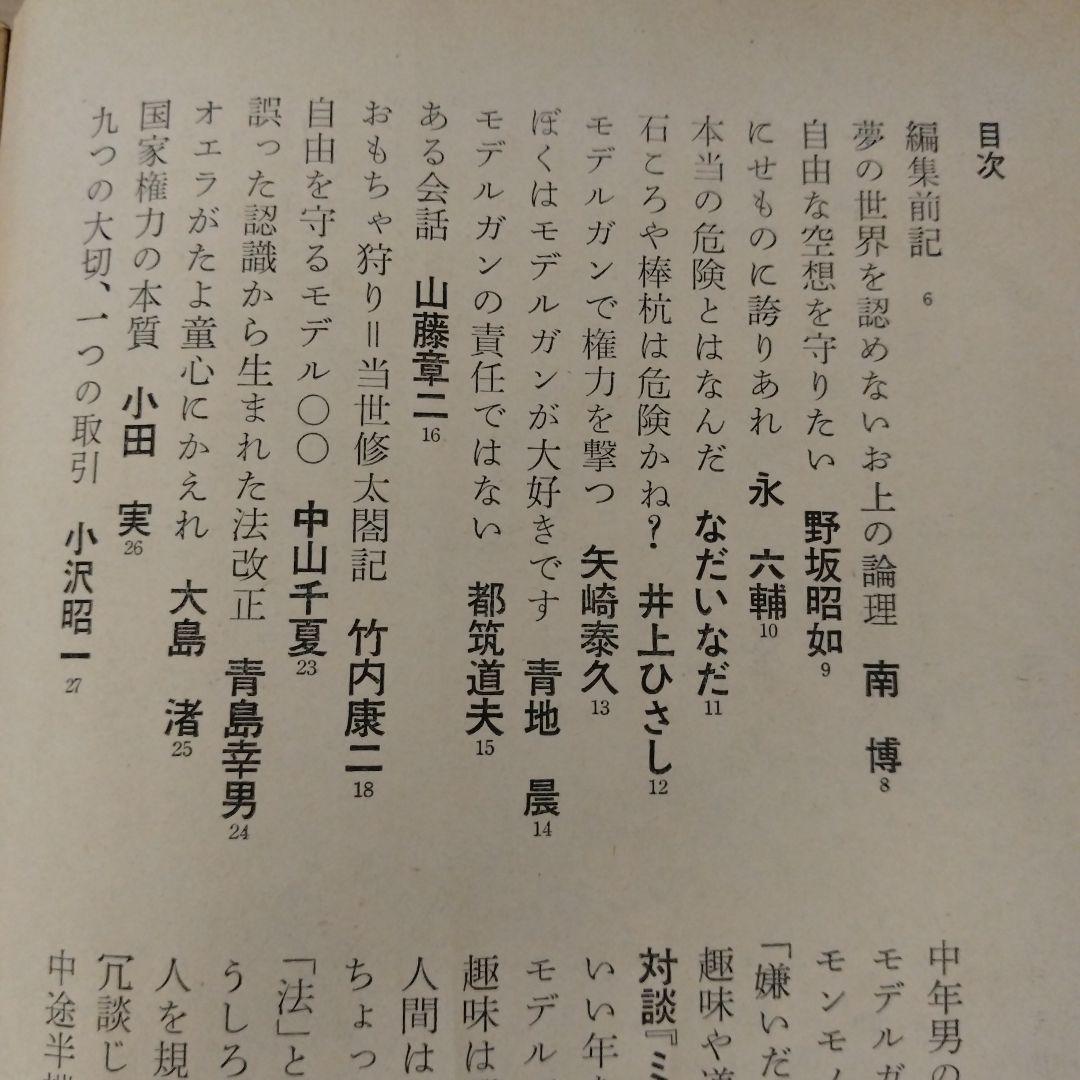 目次
編集前記 6
夢の世界を認めないお上の論理 南 博 8
自由な空想を守りたい 野坂昭如 9
にせものに誇りあれ 永 六輔 10
本当の危険とはなんだ なだいなだ 11
石ころや棒杭は危険かね? 井上ひさし 12
モデルガンで権力を撃つ 矢崎泰久 13
ぼくはモデルガンが大好きです 青地 晨 14
モデルガンの責任ではない 都筑道夫 15
ある会話 山藤章二 16
おもちゃ狩り=当世修太閤記 竹内康二 18
自由を守るモデル〇〇 中山千夏 23
誤った認識から生まれた法改正 青島幸男 24
オエラがたよ童心にかえれ 大島 渚 25
国家権力の本質 小田 実 26
九つの大切、一つの取引 小沢昭一 27
中年男の
モデルガ
モンモ
「嫌いだ
趣味や道
対談『ミ
いい年
モデル
趣味は
人間は
ちょっ
「法」と
うしろ
人を規
冗談じ
中途半